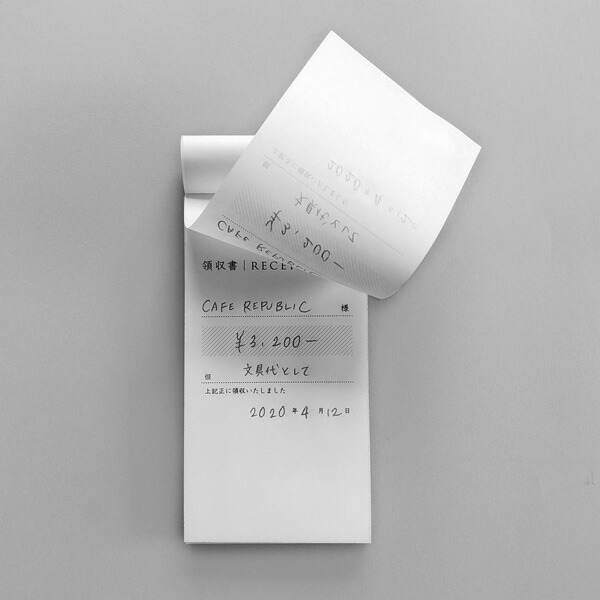 2020年4月12日
上記正に領収いたしました
但
文具代として
¥3,200−
CAFE RE
領収書 | RECE
CAFE REPUBLIC 様
¥3,200−
但 文具代として
上記正に領収いたしました
2020年4月12日